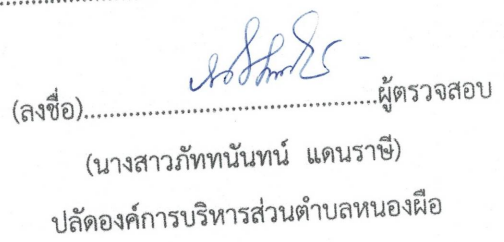 (ลงชื่อ)........................................ผู้ตรวจสอบ
(นางสาวภัททนันทน์ แดนราษี)
ปลัดองค์การบริหารส่วนตำบลหนองผือ